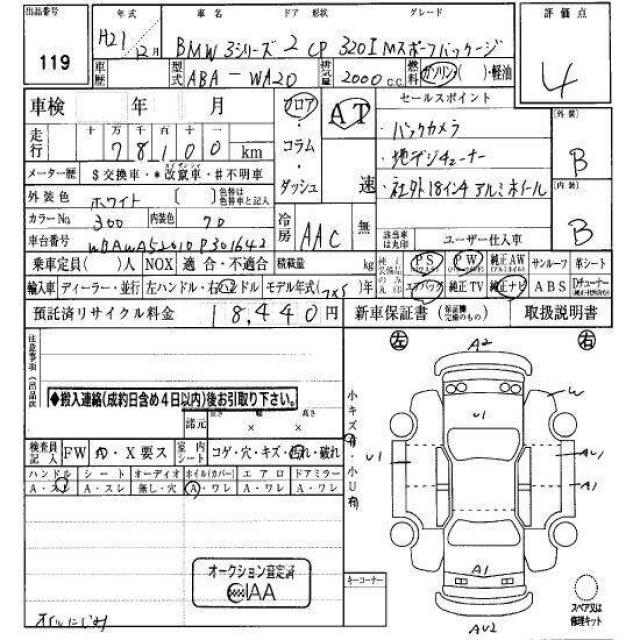 出品番号 119
年式 H21 12月 車名 BMW 3シリーズ ドア 形状 2 CP グレード 320I Mスポーツパッケージ
評価点 4
車歴 型式 ABA-WA20 排気量 2000cc 燃料 ガソリン・( )・軽油
車検 年 月
フロア・コラム・ダッシュ
AT 速
セールスポイント
・バックカメラ
・地デジチューナー
・社外18インチアルミホイール
外装 B
内装 B
走行 十万千百十一
78,100 km
メーター歴 $交換車・*改竄車・#不明車
外装色 ホワイト 〔 〕 色替は色替車と記入
カラーNo 300 内装色 70
冷房 AAC 無
該当車は丸印 ユーザー仕入車
車台番号 WBAWA52010P301642
乗車定員( )人 NOX 適合・不適合 積載量 kg
PS PW 純正AW サンルーフ 革シート
輸入車 ディーラー・並行 左ハンドル・右ハンドル モデル年式( )年
エアバッグ 純正TV 純正ナビ ABS Dチューナー
預託済リサイクル料金 18,440円 新車保証書 取扱説明書
注意事項
◆搬入連絡(成約日含め4日以内)後お引取り下さい。
諸元 長さ 幅 高さ
× ×
小キズ有・小U有
左 右
A2
W
U1
U1
AU1
A1
A1
AU2
検査員記入 FW・X要ス 室内シート コゲ・穴・キズ・汚れ・破れ
ハンドル シート オーディオ ホイル(カバー) エアロ ドアミラー
A・スレ A・スレ 無し・穴 A・ワレ A・ワレ A・ワレ
オークション査定済
AA
キーコーナー
スペア又は修理キット
オイルにじみ